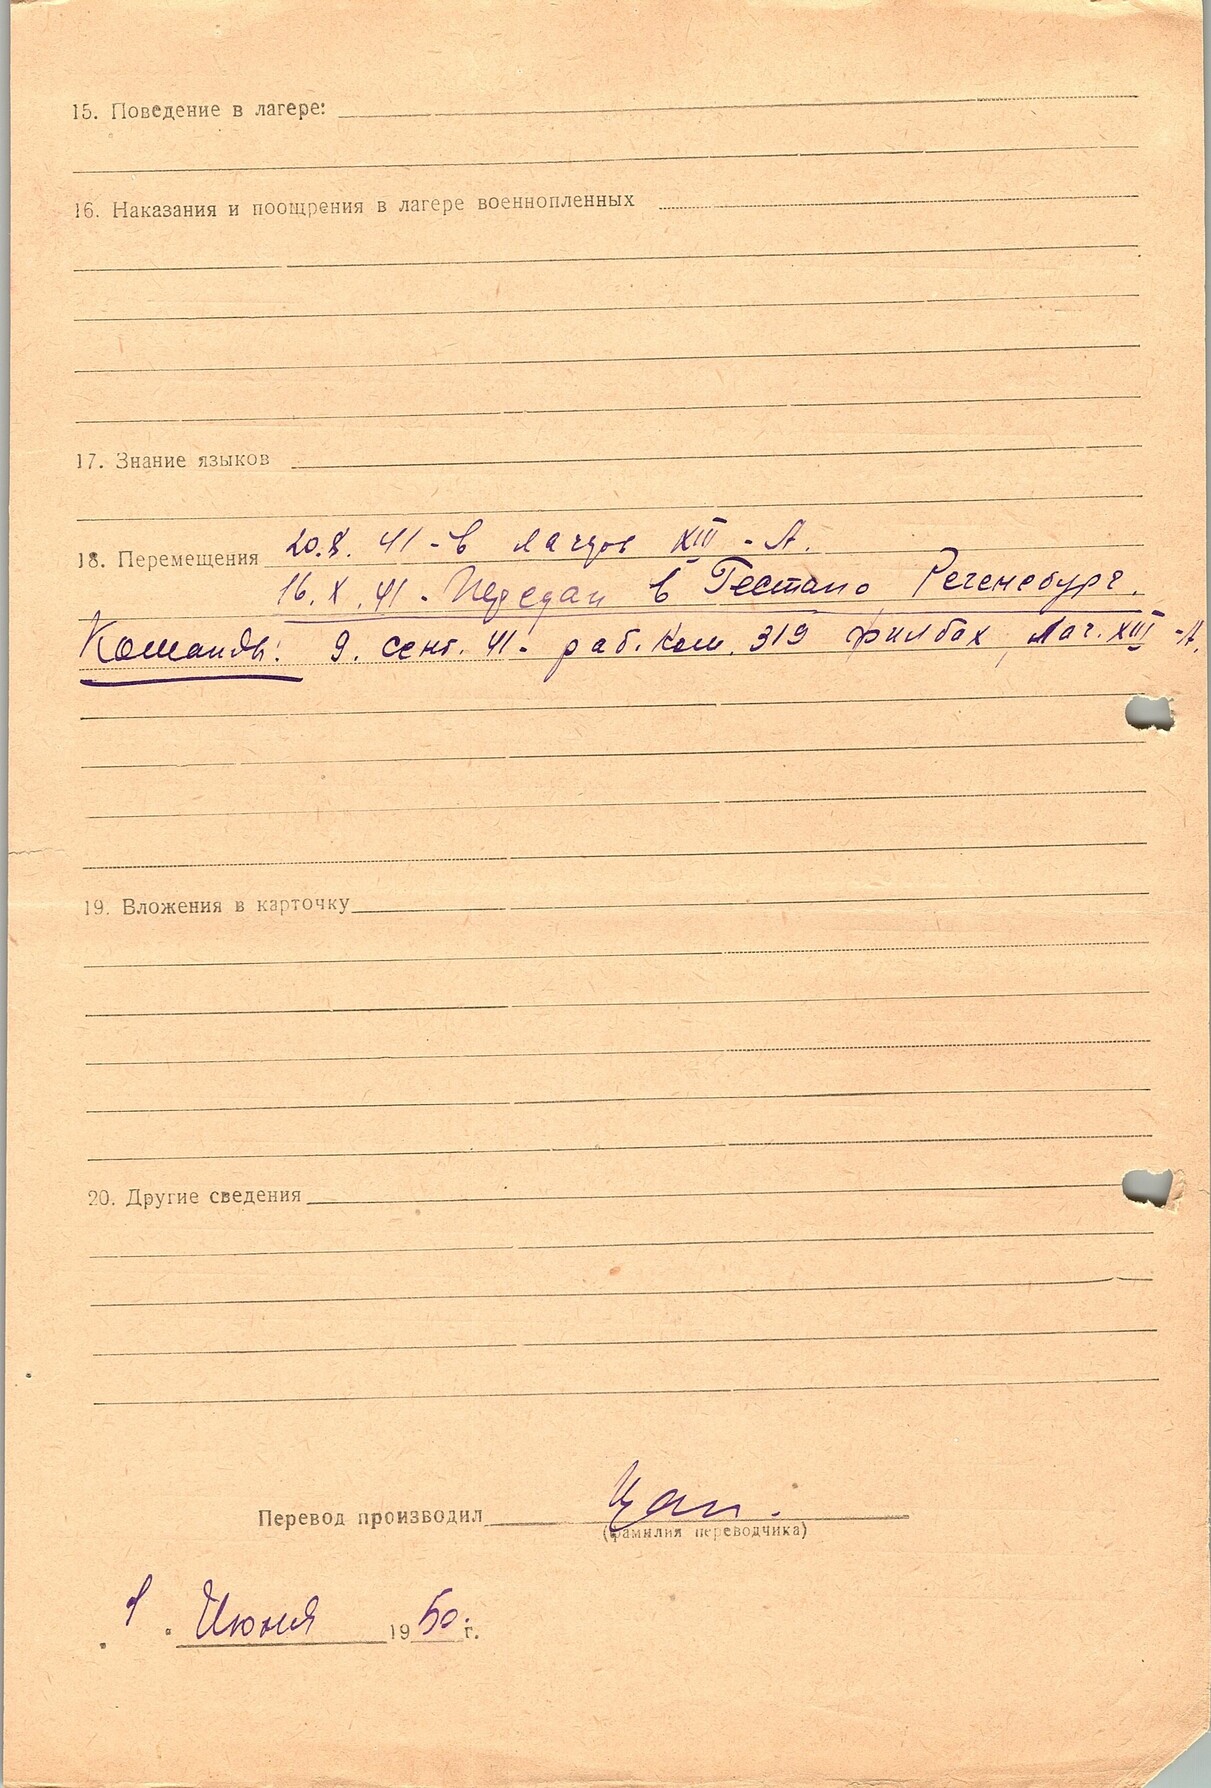 15. Поведение в лагере:
16. Наказания и поощрения в лагере военнопленных
17. Знание языков
18. Перемещения 20.8. 41 - в XIII - А.
16. X. 41 - Передан в Гестапо Регенсбург.
Команды: 9. сент. 41 - раб. ком. 319 Филбах, Лаг. XIII - А.
19. Вложения в карточку
20. Другие сведения
Перевод производил
(фамилия переводчика)
Июня 1950 г.